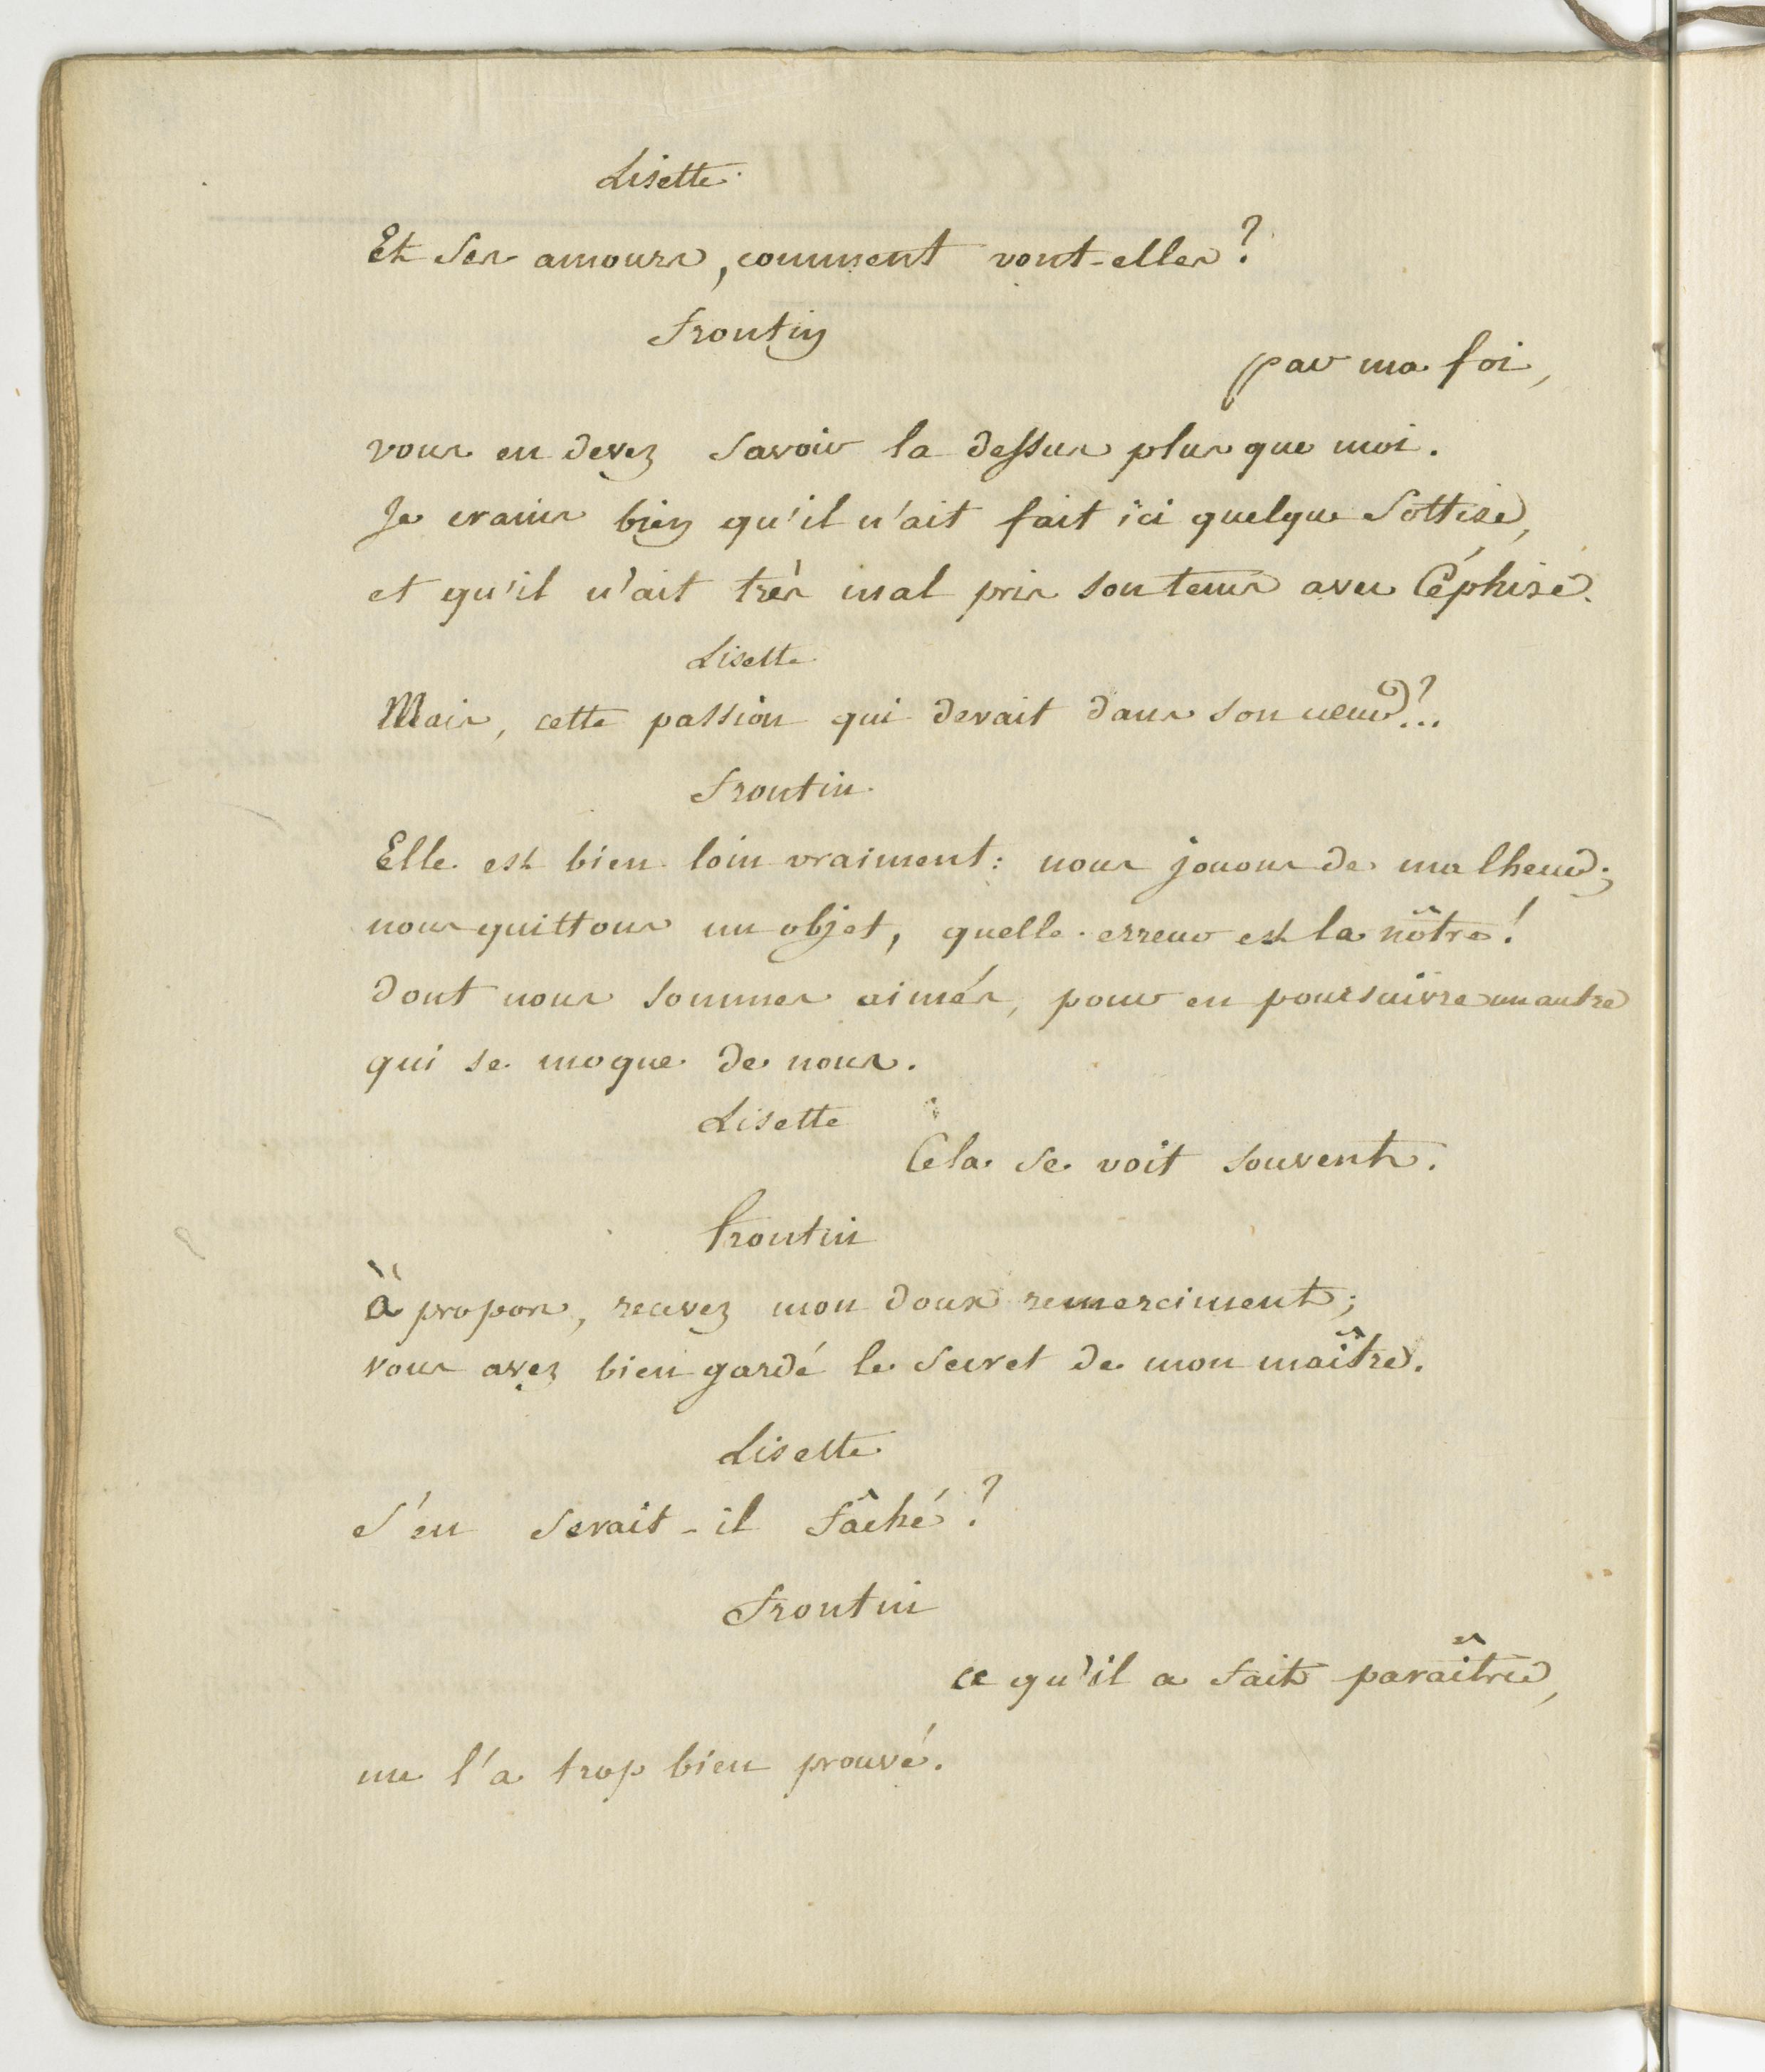 Lisette.
Et ses amours, comment vont-elles?
Frontin
par ma foi,
vous en devez savoir la dessus plus que moi.
Je crains bien qu'il n'ait fait ici quelque sottise,
et qu'il n'ait très mal pris son tems avec Céphise.
Lisette
Mais, cette passion qui devait dans son cœur?..
Frontin.
Elle est bien loin vraiment: nous jouons de malheur;
nous quittons un objet, quelle erreur est la nôtre!
dont nous sommes aimés, pour en poursuivre un autre
qui se moque de nous.
Lisette
Cela se voit souvent.
Frontin
à propos, recevez mon doux remerciment;
vous avez bien gardé le secret de mon maître.
Lisette
S'en serait-il fâché?
Frontin
ce qu'il a fait paraître,
me l'a trop bien prouvé.